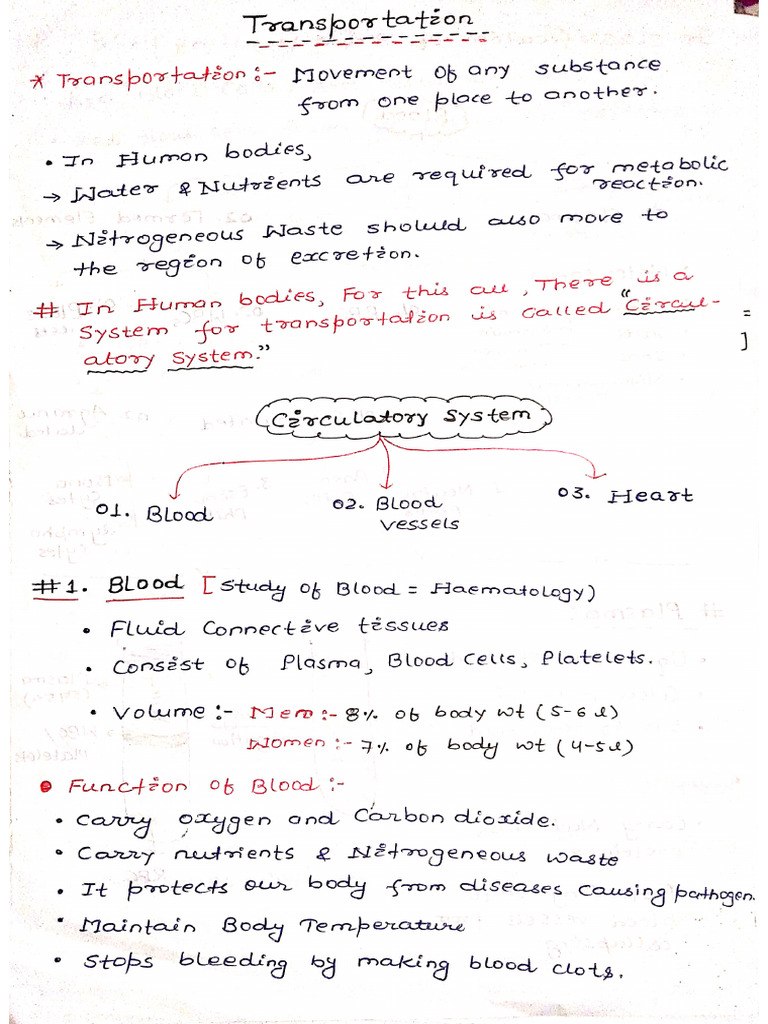 Transportation
* Transportation :- Movement of any substance
from one place to another.
• In Human bodies,
→ Water & Nutrients are required for metabolic
reaction.
→ Nitrogeneous Waste should also move to
the region of excretion.
# In Human bodies, For this all, There is a
System for transportation is called "Circul-
atory System."
Circulatory System
01. Blood
02. Blood
vessels
03. Heart
#1. Blood [Study of Blood = Haematology)
• Fluid Connective tissues
• Consist of Plasma, Blood Cells, Platelets.
• Volume :- Men :- 8% of body wt (5-6 l)
Women :- 7% of body wt (4-5l)
• Function of Blood :-
• Carry oxygen and Carbon dioxide.
• Carry nutrients & Nitrogeneous waste
• It protects our body from diseases causing pathogen.
• Maintain Body Temperature
• Stops bleeding by making blood clots.